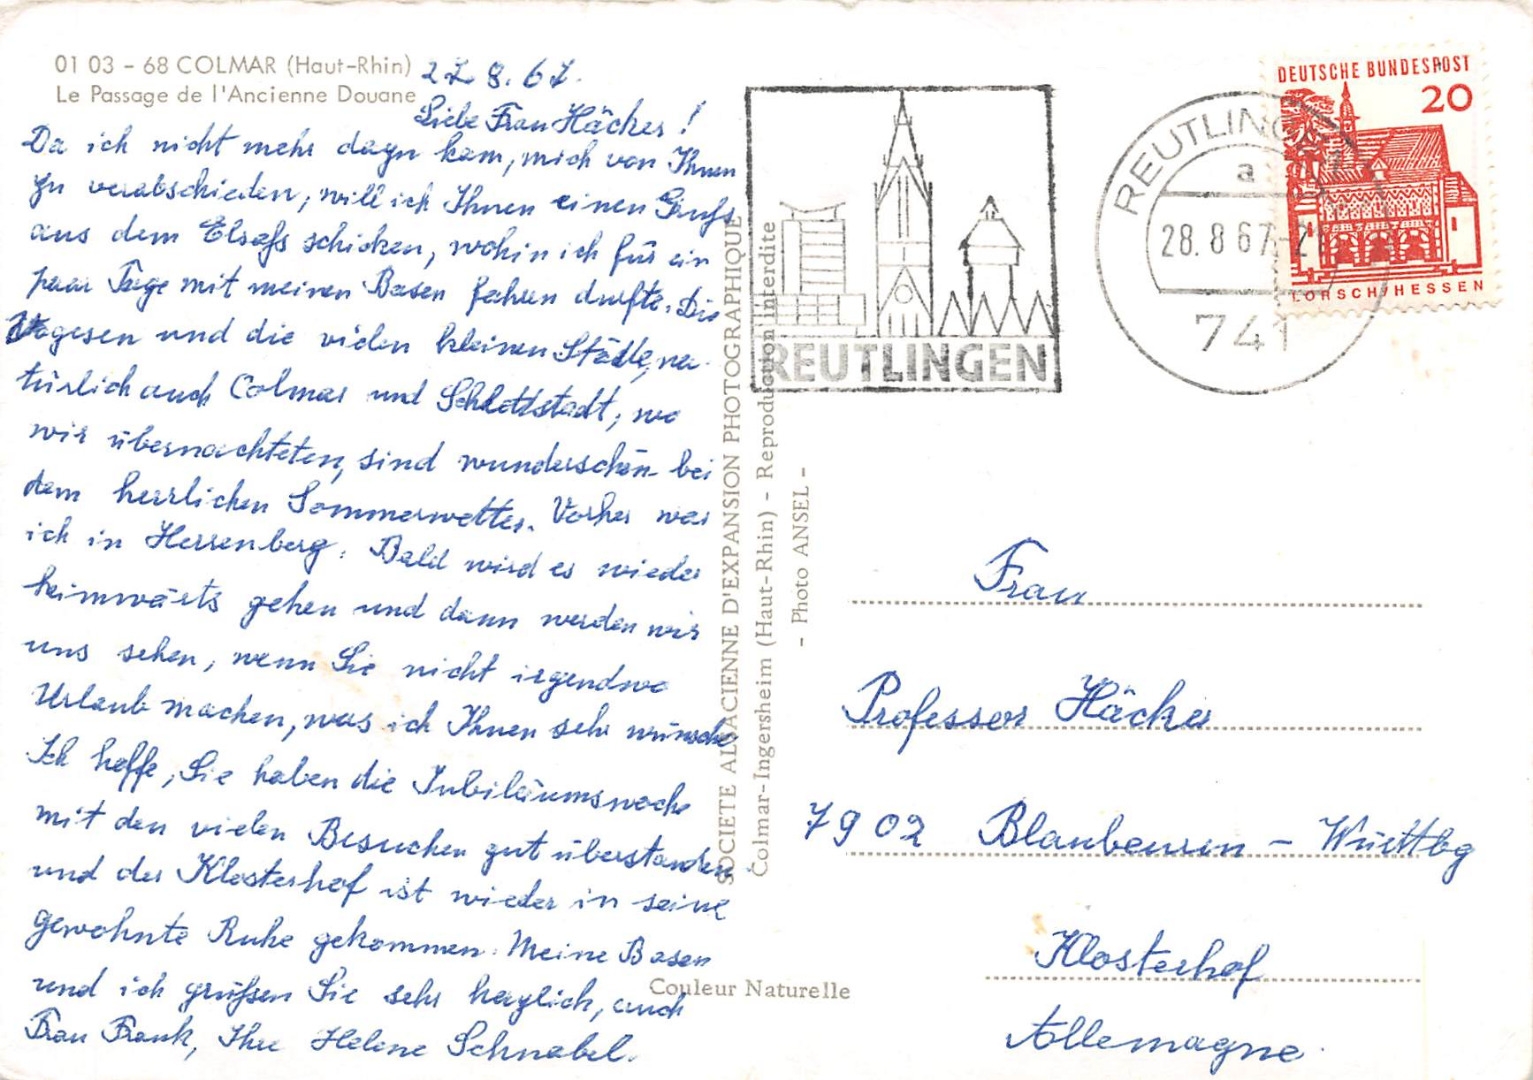 01 03 - 68 COLMAR (Haut-Rhin)
Le Passage de l'Ancienne Douane
27. 8. 67.
Liebe Frau Häcker!
Da ich nicht mehr dazu kam, mich von Ihnen
zu verabschieden, will ich Ihnen einen Gruß
aus dem Elsaß schicken, wohin ich für ein
paar Tage mit meinen Basen fahren durfte. Die
Vogesen und die vielen kleinen Städte, na-
türlich auch Colmar und Schlettstadt, wo
wir übernachteten, sind wunderschön bei
dem herrlichen Sommerwetter. Vorher war
ich in Herrenberg. Bald wird es wieder
heimwärts gehen und dann werden wir
uns sehen, wenn Sie nicht irgendwo
Urlaub machen, was ich Ihnen sehr wünsche
Ich hoffe, Sie haben die Jubiläumswoche
mit den vielen Besuchen gut überstanden
und der Klosterhof ist wieder in seine
gewohnte Ruhe gekommen. Meine Basen
und ich grüßen Sie sehr herzlich, auch
Frau Frank, Ihre Helene Schnabel.
SOCIETE ALSACIENNE D'EXPANSION PHOTOGRAPHIQUE
Colmar-Ingersheim (Haut-Rhin) - Reproduction interdite
- Photo ANSEL -
Couleur Naturelle
REUTLINGEN
REUTLINGEN
a
28. 8. 67
741
DEUTSCHE BUNDESPOST
20
LORSCH/HESSEN
Frau
Professor Häcker
7902 Blaubeuren - Württbg
Klosterhof
Allemagne.